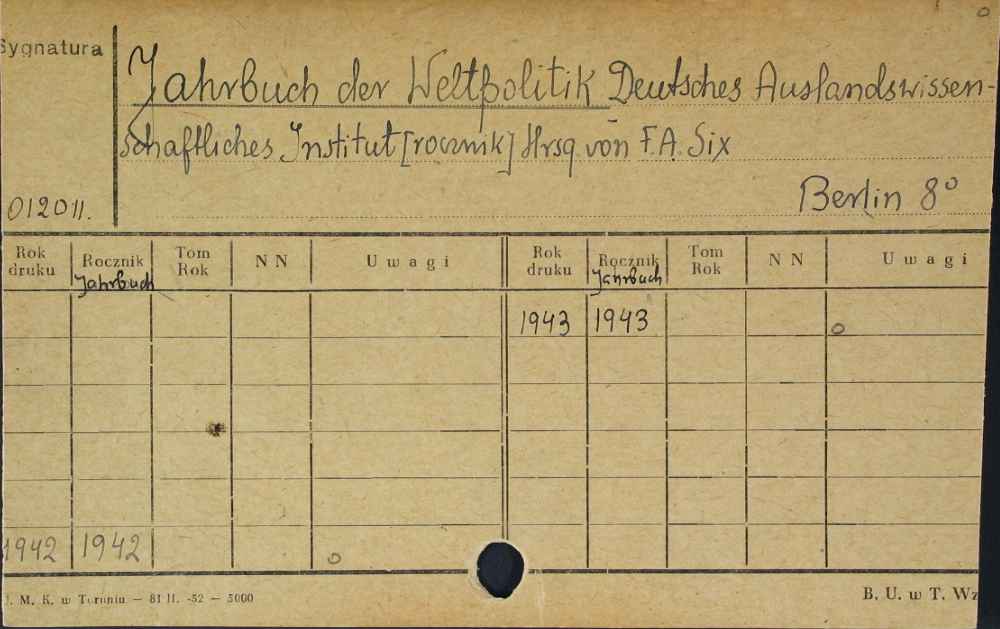 Sygnatura
Jahrbuch der Weltpolitik Deutsches Auslandswissen-
schaftliches Institut [rocznik] Hrsg. von F.A. Six
Berlin 8°
012011.
Rok druku Rocznik Tom Rok NN Uwagi Rok druku Rocznik Tom Rok NN Uwagi
Jahrbuch Jahrbuch
1943 1943 o
1942 1942 o
J. M. K. w Toruniu — 81 II. -52 — 5000 B. U. w T. Wz